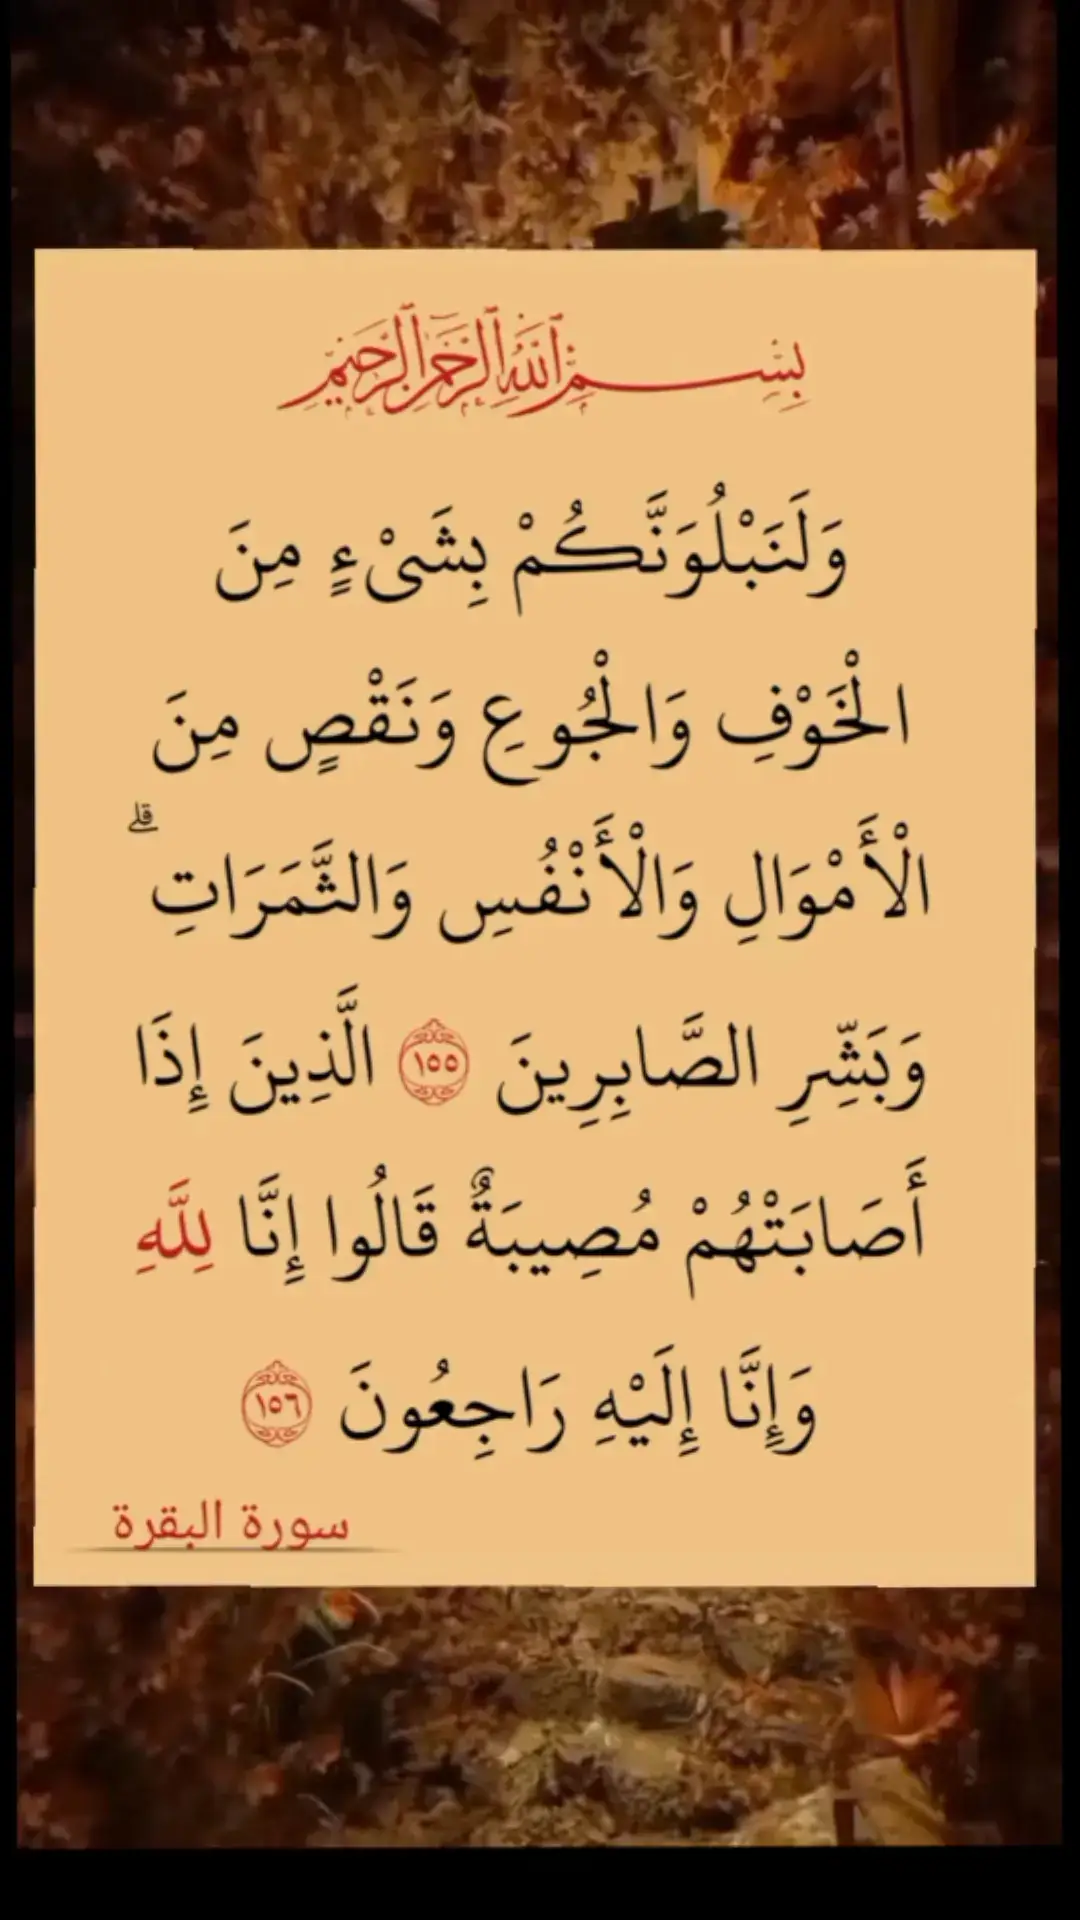 بِسْمِ اللَّهِ الرَّحْمَٰنِ الرَّحِيمِ
وَلَنَبْلُوَنَّكُمْ بِشَىْءٍ مِنَ
الْخَوْفِ وَالْجُوعِ وَنَقْصٍ مِنَ
الْأَمْوَالِ وَالْأَنْفُسِ وَالثَّمَرَاتِ ۗ
وَبَشِّرِ الصَّابِرِينَ ١٥٥ الَّذِينَ إِذَا
أَصَابَتْهُمْ مُصِيبَةٌ قَالُوا إِنَّا لِلَّهِ
وَإِنَّا إِلَيْهِ رَاجِعُونَ ١٥٦
سورة البقرة